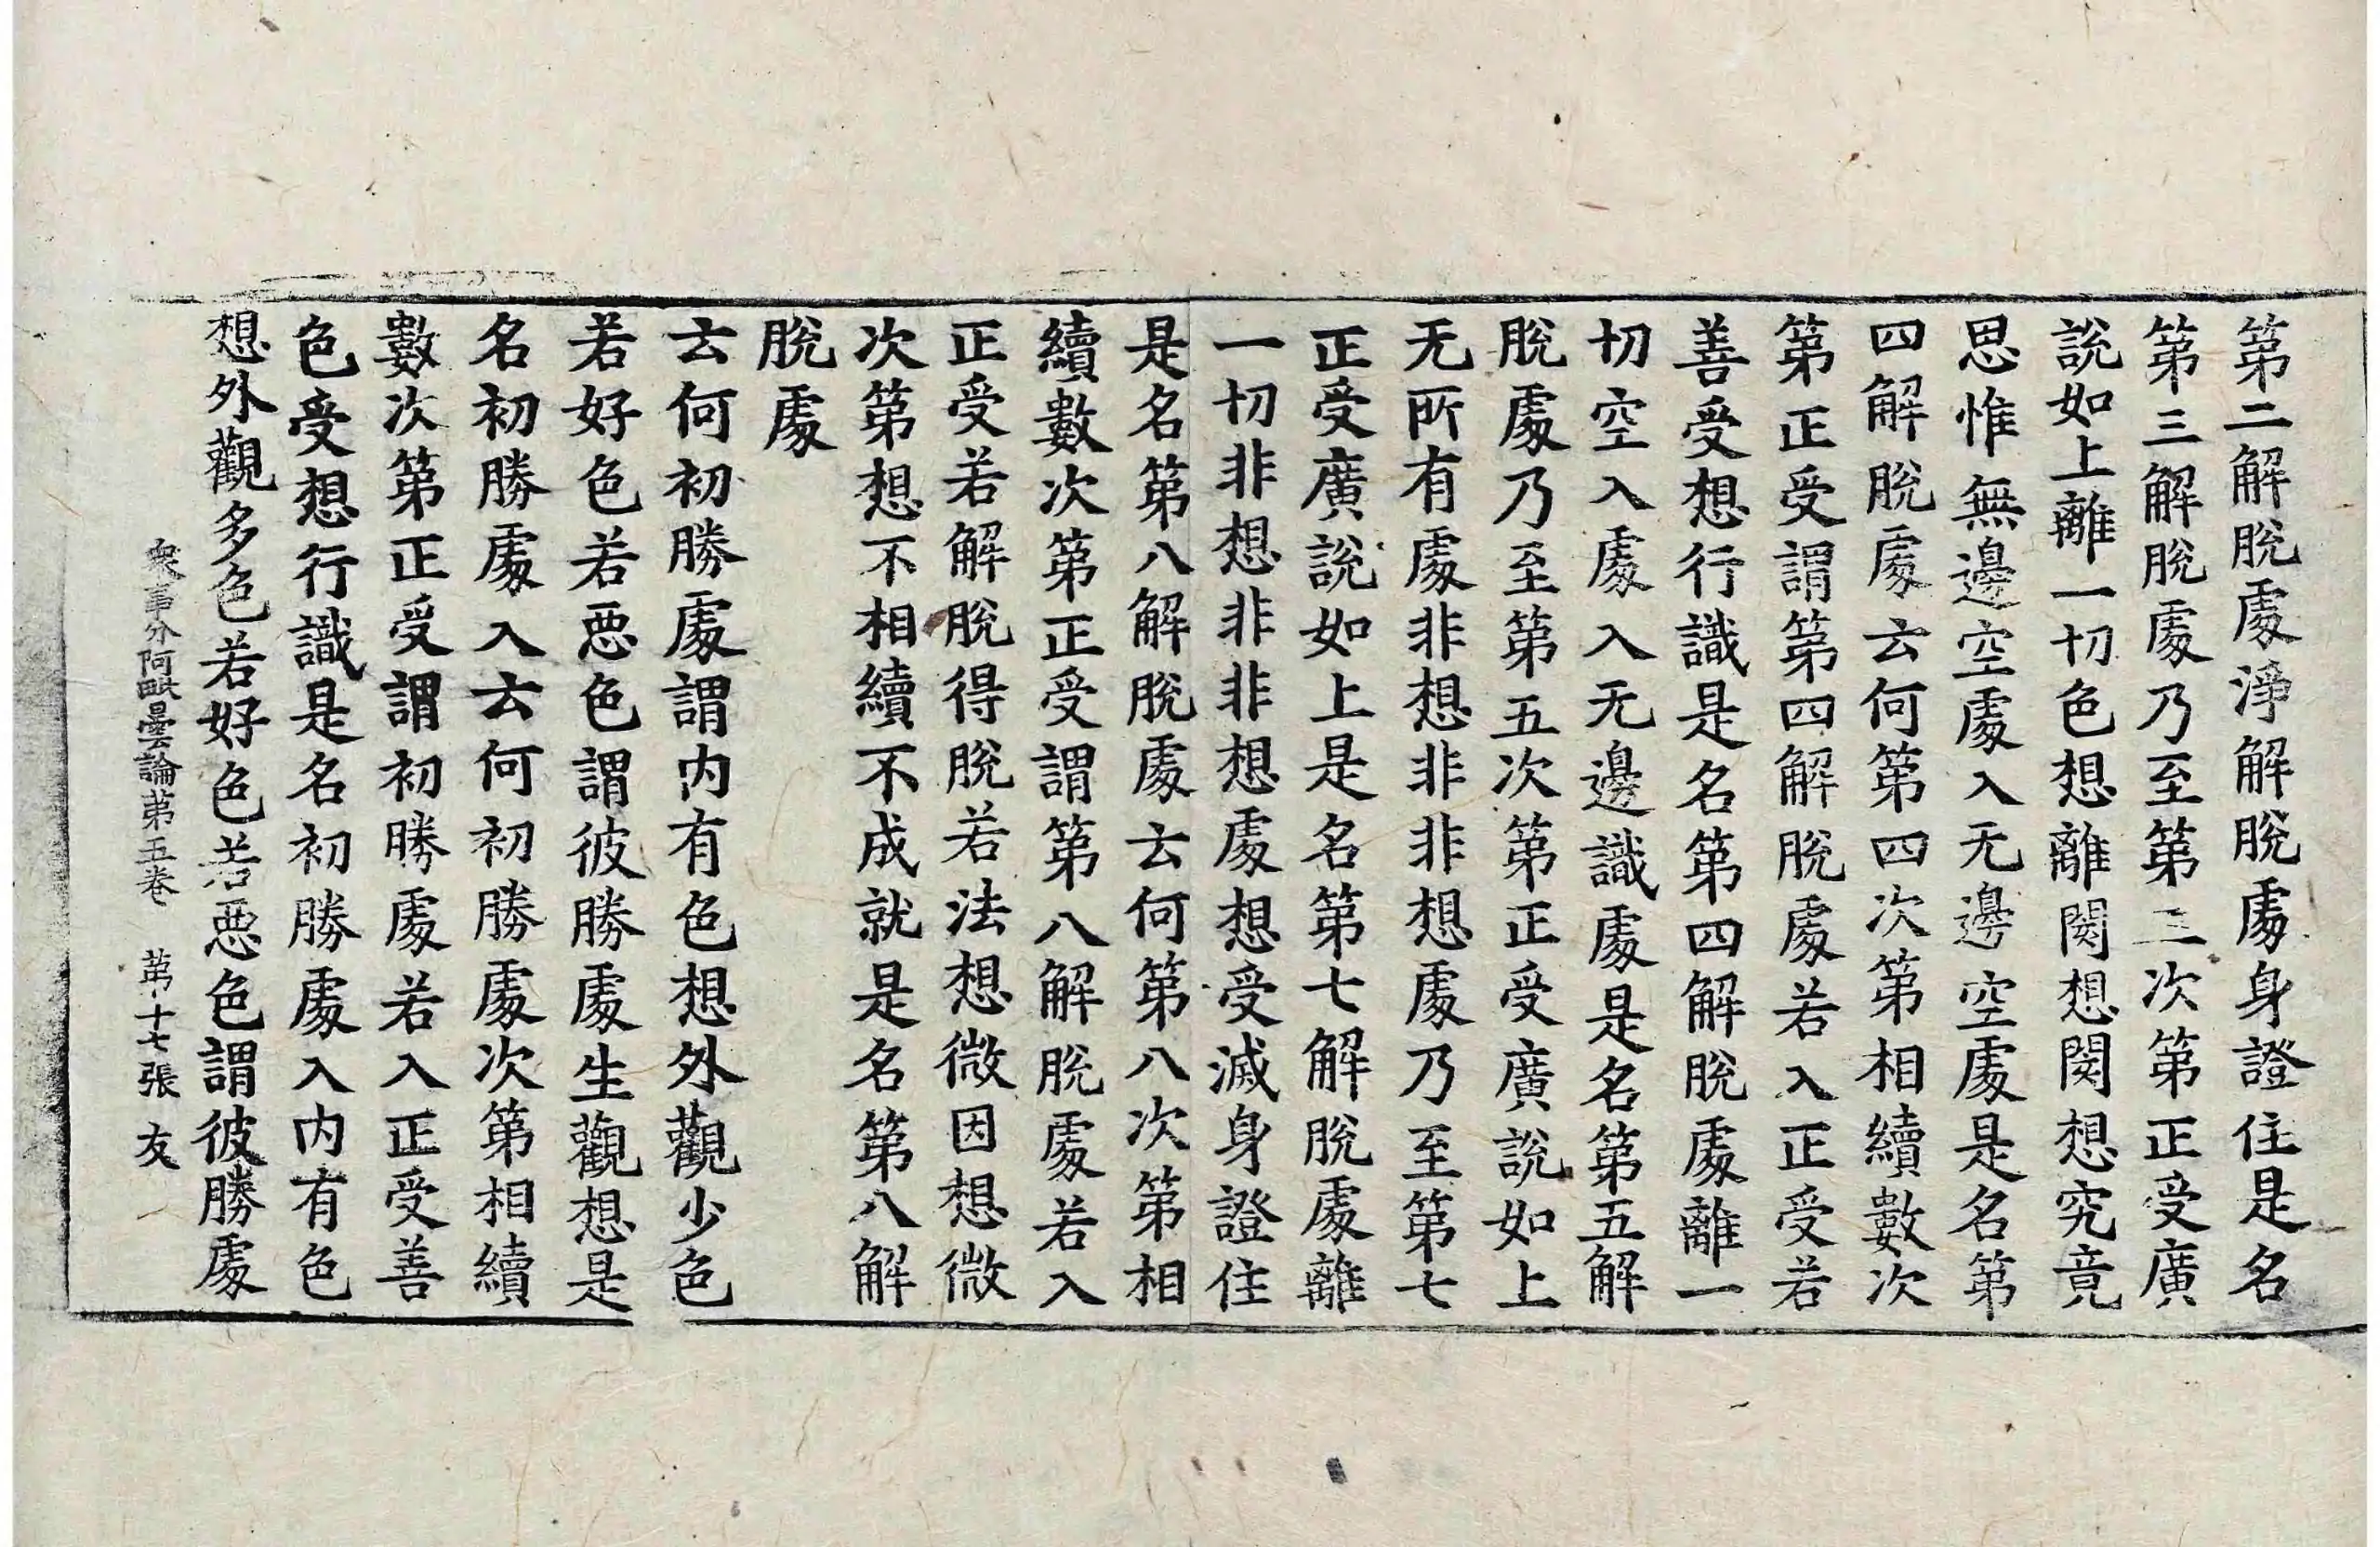 第二解脫處淨解脫處身證住是名
第三解脫處乃至第三次第正受廣
說如上離一切色想離閡想閡想究竟
思惟無邊空處入无邊空處是名第
四解脫處云何第四次第相續數次
第正受謂第四解脫處若入正受若
善受想行識是名第四解脫處離一
切空入處入无邊識處是名第五解
脫處乃至第五次第正受廣說如上
无所有處非想非非想處乃至第七
正受廣說如上是名第七解脫處離
一切非想非非想處想受滅身證住
是名第八解脫處云何第八次第相
續數次第正受謂第八解脫處若入
正受若解脫得脫若法想微因想微
次第想不相續不成就是名第八解
脫處
云何初勝處謂內有色想外觀少色
若好色若惡色謂彼勝處生觀想是
名初勝處入云何初勝處次第相續
數次第正受謂初勝處若入正受善
色受想行識是名初勝處入內有色
想外觀多色若好色若惡色謂彼勝處
衆事分阿毗曇論第五卷 第十七張 友